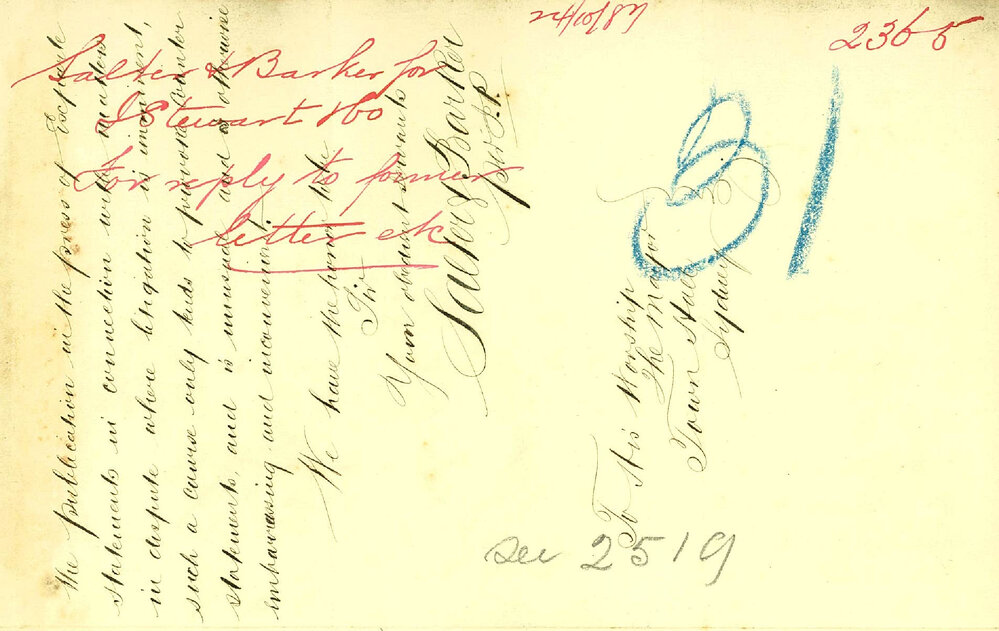 The publication in the press of Exparte
statements in connection with matters
in dispute where litigation is imminent,
such a course only leads to provoke counter
statements, and is unusual and otherwise
embarassing and inconvenient.
We have the honor to be
Sir
Your obedient servants
Salter & Barker
per J.P.
To His Worship
The Mayor
Town Hall
Sydney
24/10/87
2365
Salter & Barker for
J Stewart &Co
For reply to former
letter etc
81
see 2519